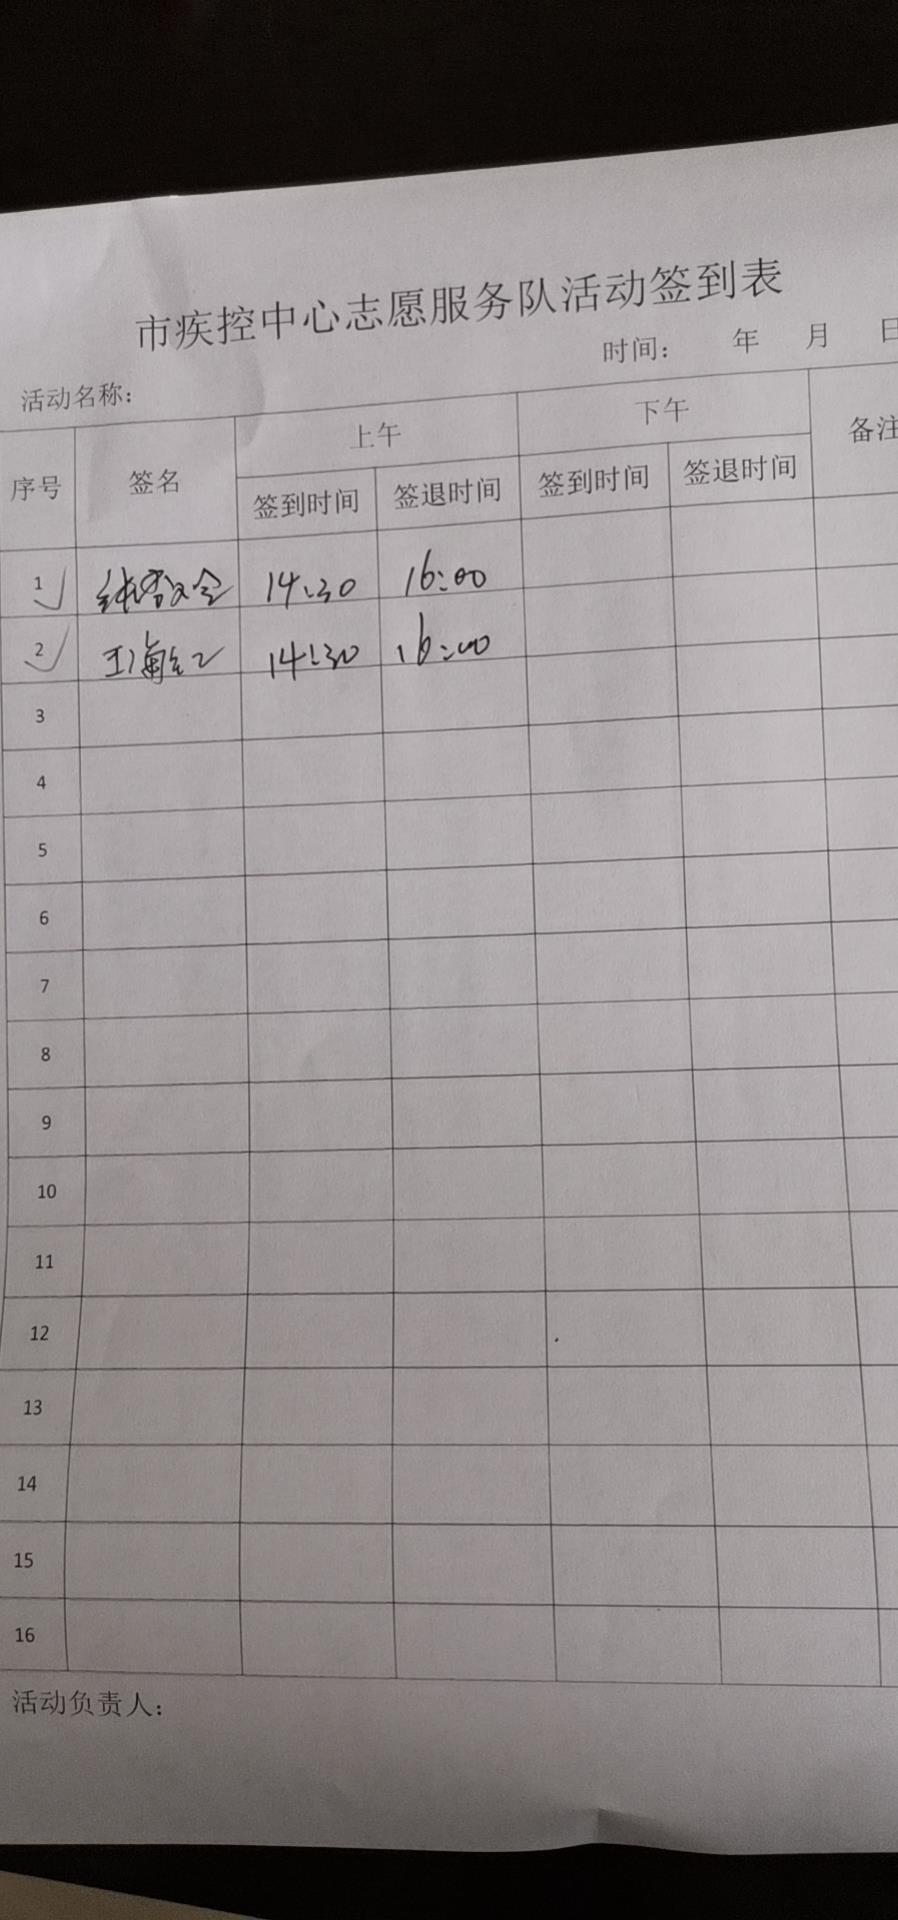 市疾控中心志愿服务队活动签到表
时间： 年 月 日
活动名称：
序号 签名 上午 下午 备注
签到时间 签退时间 签到时间 签退时间
1 14:30 16:00
2 14:30 16:00
3
4
5
6
7
8
9
10
11
12
13
14
15
16
活动负责人：